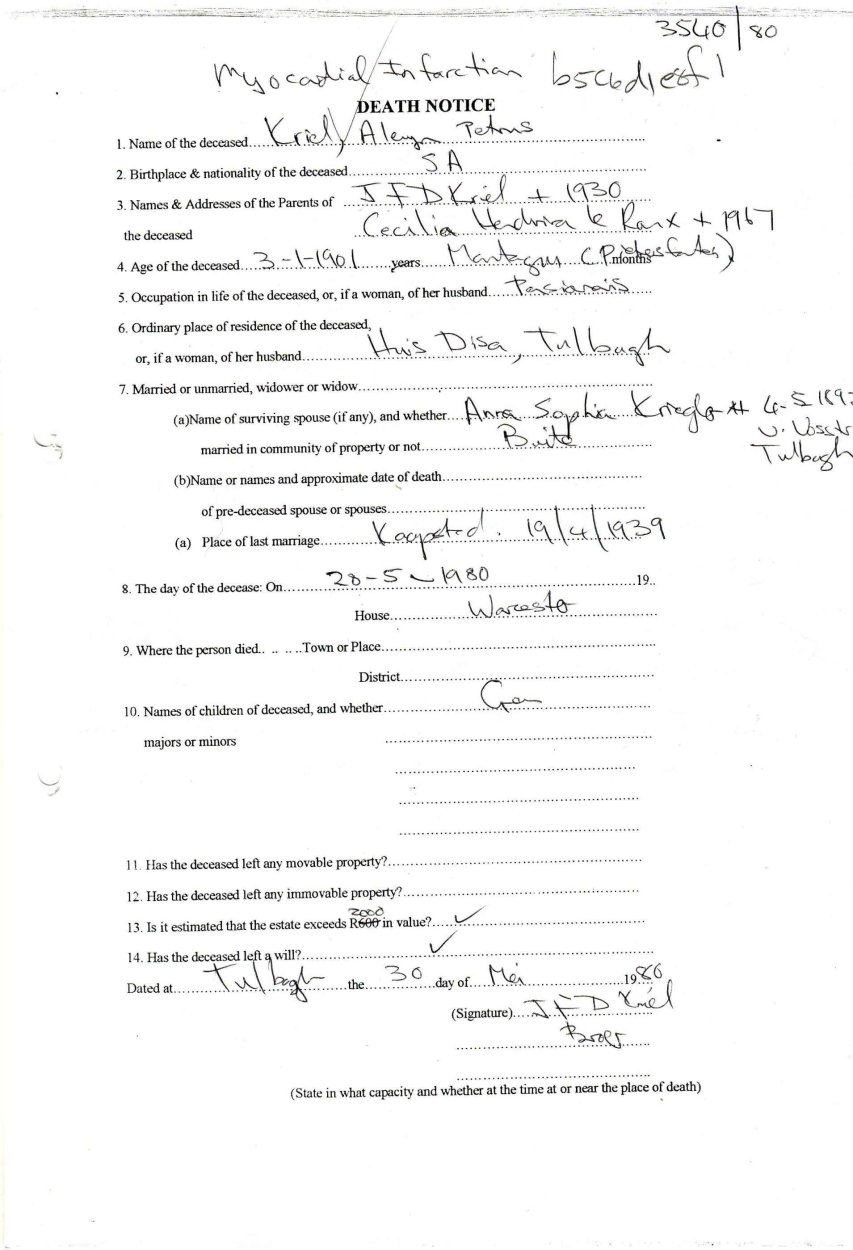 3540/80
Myocadial Infarction b5c6d1e8f1
DEATH NOTICE
1. Name of the deceased Kriel, Aleyn Petrus
2. Birthplace & nationality of the deceased SA
3. Names & Addresses of the Parents of J F D Kriel + 1930
the deceased Cecilia Hendrina le Roux + 1967
4. Age of the deceased 3-1-1901 years Montagu (P. months
5. Occupation in life of the deceased, or, if a woman, of her husband
6. Ordinary place of residence of the deceased,
or, if a woman, of her husband Huis Disa, Tulbagh
7. Married or unmarried, widower or widow
(a)Name of surviving spouse (if any), and whether Anna Sophia 4-5 189
married in community of property or not Buite
Tulbagh
(b)Name or names and approximate date of death
of pre-deceased spouse or spouses
(a) Place of last marriage Kaapstad. 19/4/1939
8. The day of the decease: On 28-5-1980 19..
House Worcester
9. Where the person died.. .. .. ..Town or Place
District
10. Names of children of deceased, and whether Geen
majors or minors
11. Has the deceased left any movable property?
12. Has the deceased left any immovable property?
2000
13. Is it estimated that the estate exceeds R600 in value? ✓
14. Has the deceased left a will? ✓
Dated at Tulbagh the 30 day of Mei 1980
(Signature) J F D Kriel
Broer
(State in what capacity and whether at the time at or near the place of death)